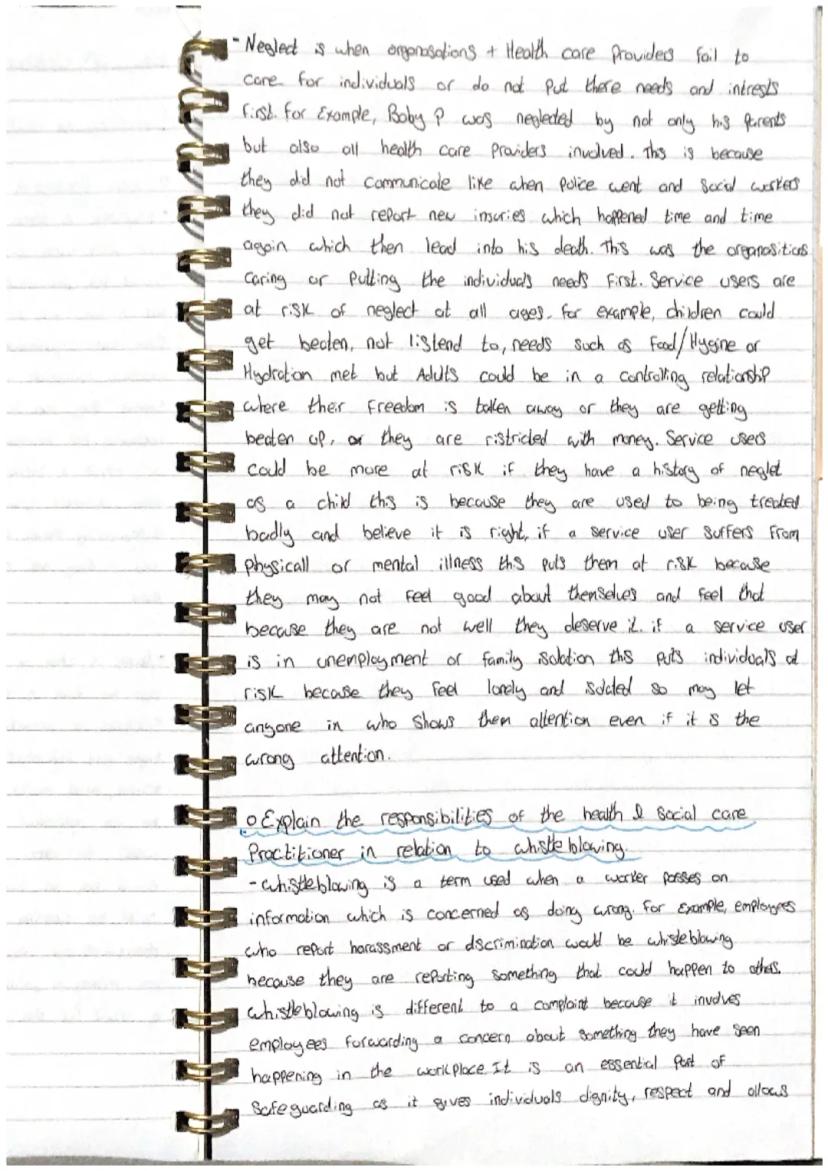 - Neglect is when organosations + Health care Providers fail to
care for individuals or do not put there needs and intrests
first. for Example, Baby P was negleded by not only his parents
but also all health care Providers involved. Ths is because
they did not communicate like when police went and social workers
they did not report new insuries which happened time and time
again which then lead into his death. Ths was the organositions
caring or Putting the individuals needs First. Service users are
at risk of neglect at all ages. for example, children could
get beaten, not listend to, needs such as Food/Hygine or
Hydration met but Adults could be in a controlling relationship
where their freedom is taken away or they are getting
beaten up, or they are ristricted with money. Service users
could be more at risk if they have a history of neglet
as a child this is because they are used to being treated
badly and believe it is right, if a service user suffers from
physicall or mental illness ths puts them at risk because
they may not feel good about themselves and feel that
because they are not well they deserve it. if a service user
is in unemployment or family isolation ths puts individuals at
risk because they feel lonely and isolated so may let
anyone in who shows them attention even if it is the
wrong attention.
o Explain the responsibilities of the health & Social care
Practitioner in relation to whistleblowing.
- Whistleblowing is a term used when a worker passes on
information which is concerned as doing wrong. For Example, employees
who report harassment or dscrimination would be whistleblowing
because they are reporting something that could happen to others.
Whistleblowing is different to a complaint because it involves
employees forwarding a concern about something they have seen
happening in the workplace. It is an essential part of
Safeguarding as it gives individuals dignity, respect and allows